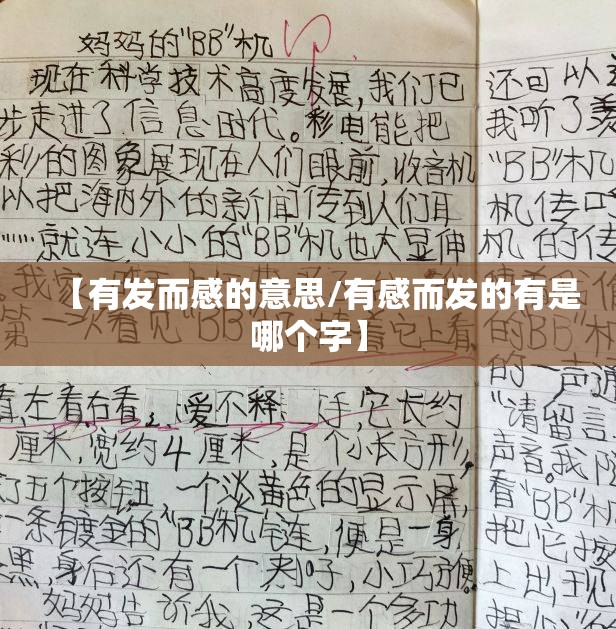 妈妈的“BB”机
现在科学技术高度发展，我们已
步走进了信息时代。彩电能把
彩的图象展现在人们眼前，收音机
以把海内外的新闻传到人们耳
……就连小小的“BB”机也大显伸
【有发而感的意思/有感而发的有是
哪个字】
第一次看见“BB”
看它上看
看，左看右看，爱不释手，它长约
厘米，宽约4厘米，是个小长方形，
了五个按钮，一个淡黄色的显示屏，
一条镀金的“BB”机链，便是一身
黑，身后还有一个夹子，小巧方便
妈妈告诉我，这是一个多功
还可以
我听了
“BB”机
机传
机的传
的“BB”机
的一声
“请留言
声音。我
看“BB”机
把它按
上出现